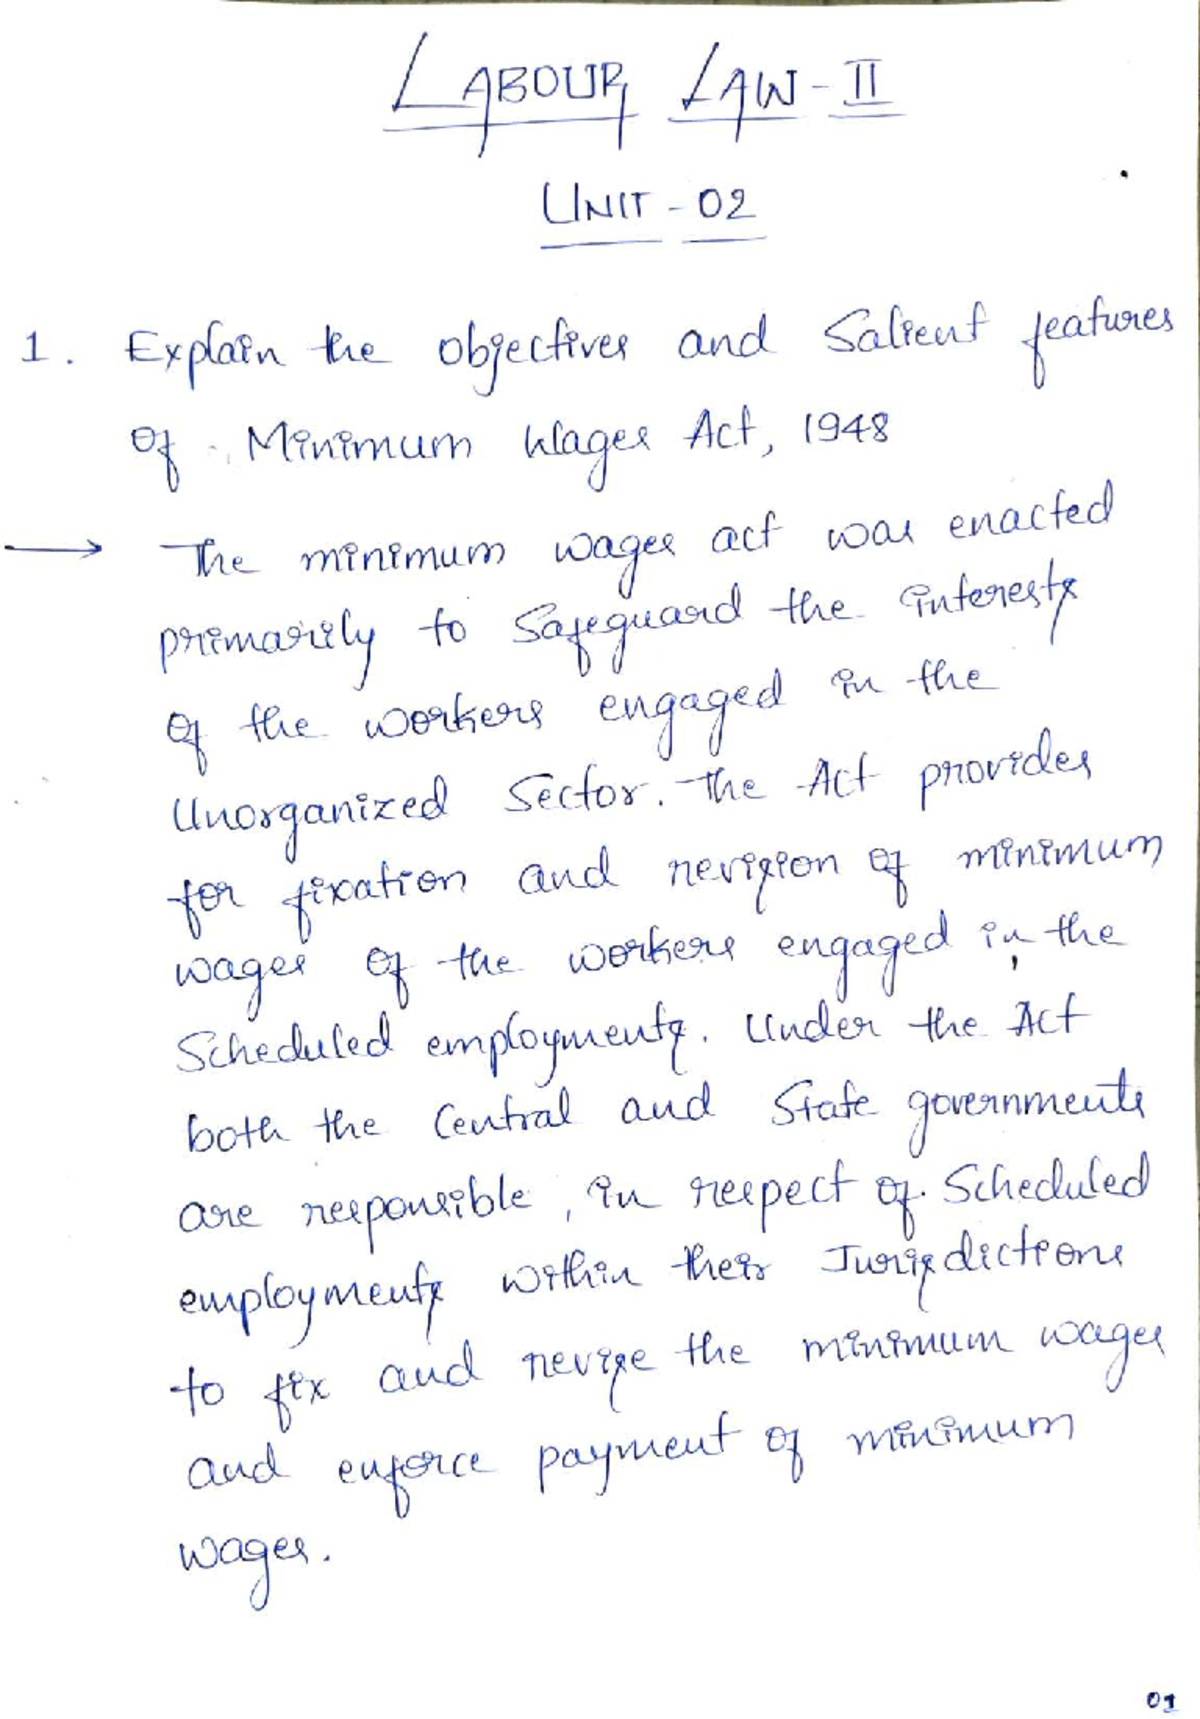 LABOUR LAW - II
UNIT - 02
1. Explain the objectives and Salient features
of Minimum Wages Act, 1948
→ The minimum wages act was enacted
primarily to Safeguard the interests
of the workers engaged in the
Unorganized Sector. The Act provides
for fixation and revision of minimum
wages of the workers engaged in the
Scheduled employments. Under the Act
both the Central and State governments
are responsible, in respect of Scheduled
employments within their Jurisdictions
to fix and revise the minimum wages
and enforce payment of minimum
wages.
01